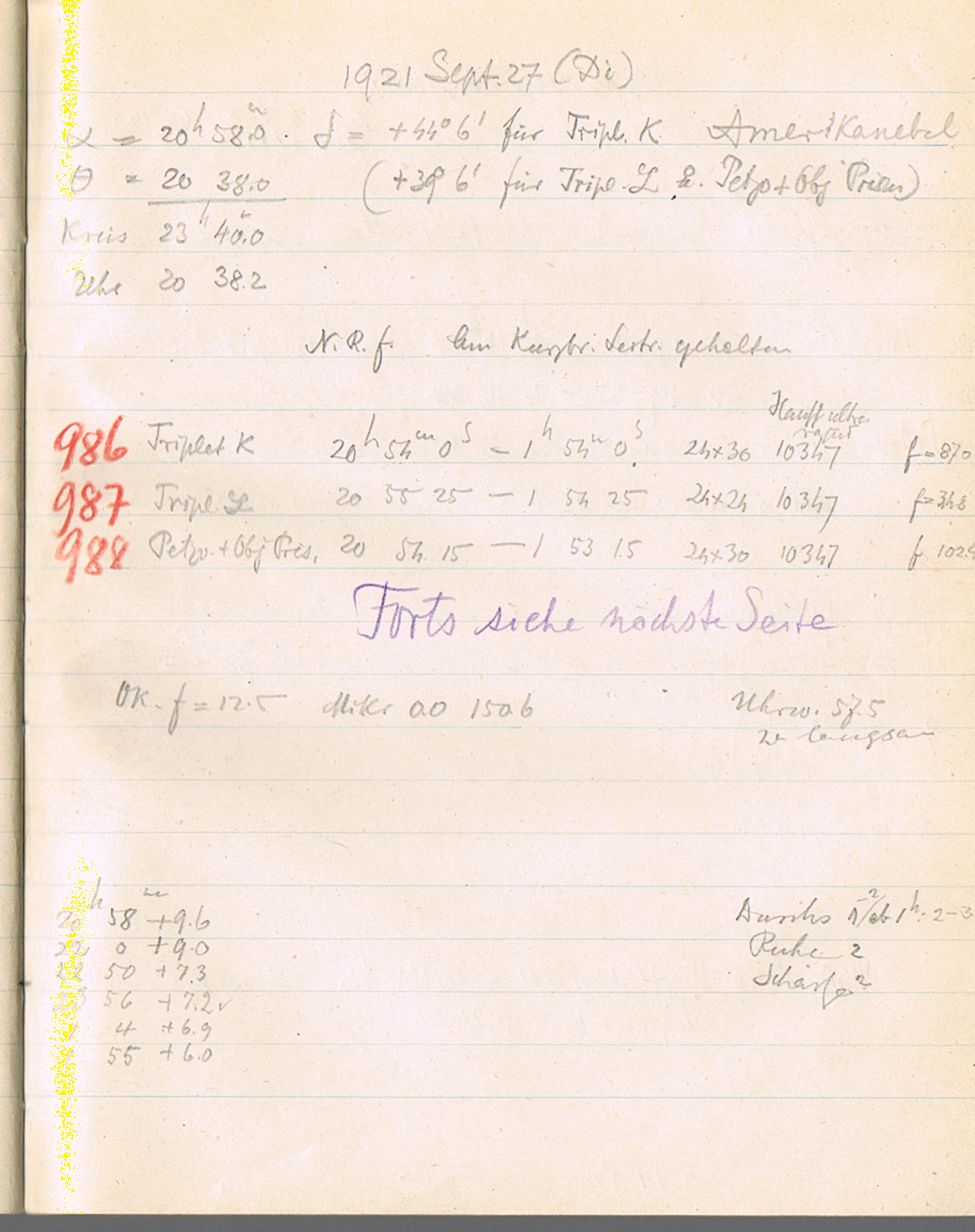 1921 Sept. 27 (Di)
α = 20h 58m.0 . δ = +44° 6' für Tripl. K Amerikanebel
θ = 20 38.0 (+39° 6' für Tripl. L & Petzv + Obj Prism)
Kreis 23h 40m.0
Uhr 20 38.2
N.R.f. Am Kurzbr. Refr. gehalten
Hauff ultra
rapid
986 Triplet K 20h 54m 0s – 1h 54m 0s 24×30 10347 f=870
987 Tripl. L 20 55 25 – 1 54 25 24×24 10347 f=348
988 Petzv. + Obj Pris. 20 54 15 – 1 53 15 24×30 10347 f 102.4
Forts siehe nächste Seite
Ok. f = 12.5 Mikr 00 150.6 Uhrw. 57.5
zu langsam
20h 58m +9.6 Durchs 1-2/ab 1h: 2–3
22 0 +9.0 Ruhe 2
22 50 +7.3 Schärfe 2
56 +7.2
1 4 +6.9
55 +6.0